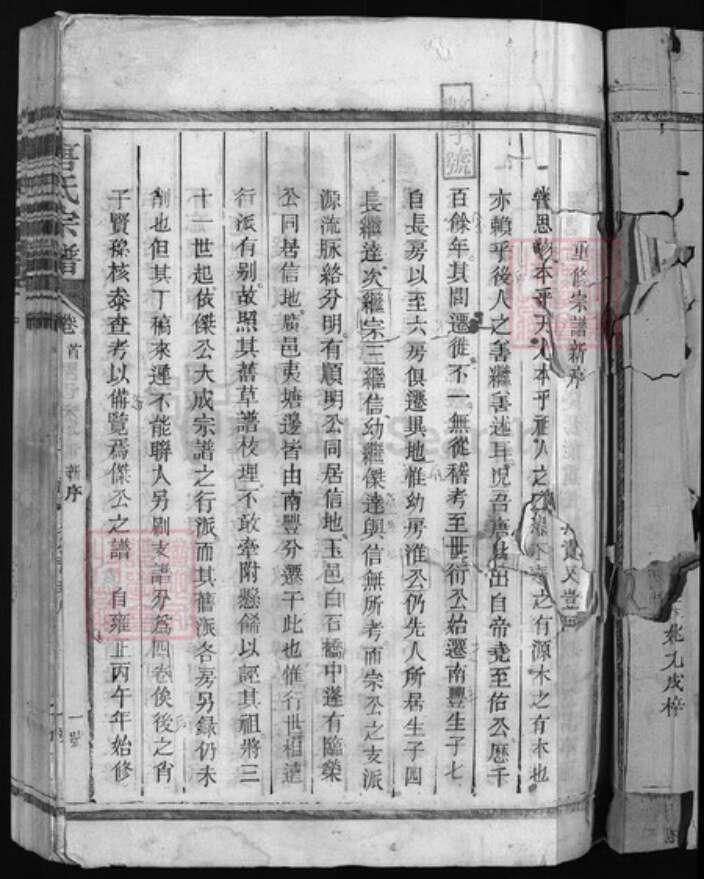 重修宗譜新序
嘗思物本乎天人本乎祖人之之有源木之有本也
亦賴乎後人之善繼善述耳况吾唐氏出自帝堯至佑公歷千
百餘年其間遷徙不一無從稽考至世衍公始遷南豐生子七
自長房以至六房俱遷異地惟幼房淮公仍先人所居生子四
長繼達次繼宗三繼信幼繼傑達與信無所考而宗公之支派
源流脉絡分明有順明公同居信地玉邑白石橋中蓬有臨榮
公同居信地廣邑夷塘邊皆由南豐分遷于此也惟行世相達
行派有别故照其舊草譜校理不敢牽附懸備以誣其祖將三
十一世起依傑公大成宗譜之行派而其舊派各房另録仍未
削也但其丁稿來遲不能聯入另刷支譜分為四卷俟後之肖
子賢孫核泰查考以備覽焉傑公之譜 自雍正丙午年始修
唐氏宗譜
卷首
新序
一
號
字號
九成梓